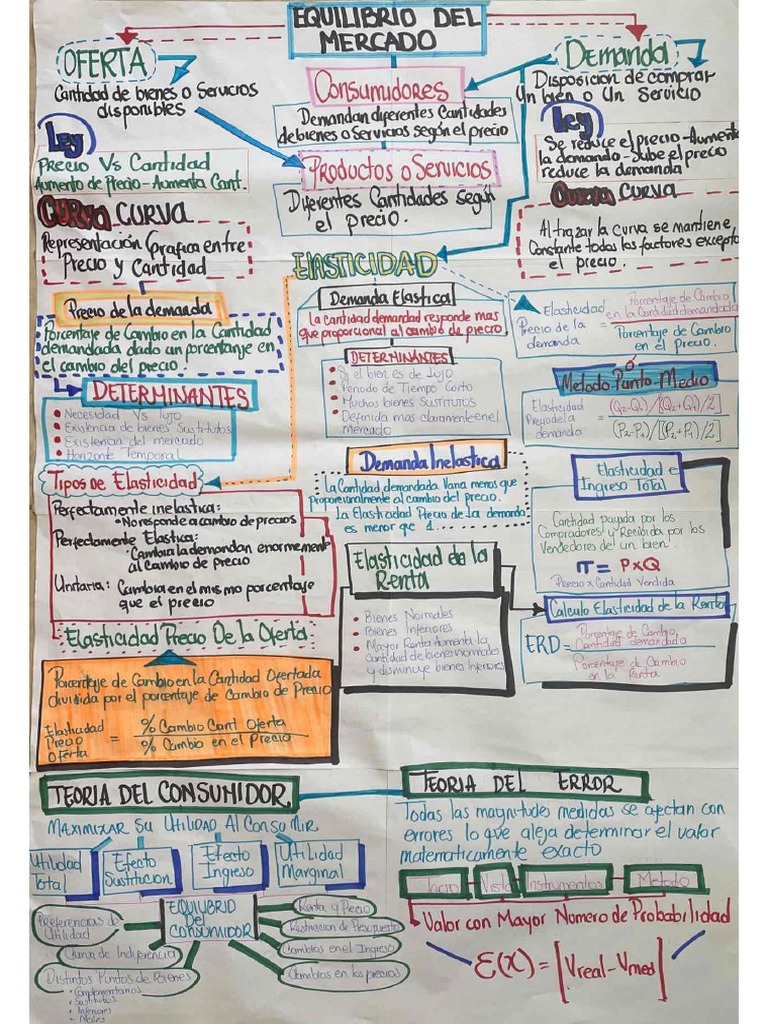 EQUILIBRIO DEL
MERCADO
OFERTA
Cantidad de bienes o Servicios
disponibles
Ley
Precio Vs Cantidad
Aumento de Precio-Aumenta Cant.
CURVA CURVA
Representación Grafica entre
Precio y Cantidad
Consumidores
Demandan diferentes Cantidades
de bienes o Servicios según el precio
Productos o Servicios
Diferentes Cantidades según
el Precio.
Demanda
Disposición de comprar
Un bien o Un Servicio
Ley
Se reduce el precio-Aumenta
la demanda-Sube el precio
reduce la demanda
CURVA CURVA
Al trazar la curva se mantiene
Constante todos los factores excepto
el precio.
ELASTICIDAD
Precio de la demanda
Porcentaje de Cambio en la Cantidad
demandada dado un porcentanje en
el cambio del precio.
DETERMINANTES
Necesidad Vs lujo
Existencia de bienes Sustitutos
Existencia del mercado
Horizonte Temporal
Demanda Elastica
La cantidad demandad responde mas
que proporcional al cambio de precio.
DETERMINANTES
Si el bien es de lujo
Periodo de Tiempo Corto
Muchos bienes Sustitutos
Definida mas claramente en el
mercado
Elasticidad
Precio de la
demanda
=
Porcentaje de Cambio
en la Cantidad demandada
Porcentaje de Cambio
en el Precio.
Metodo Punto-Medio
Elasticidad
demanda
=
(Q2-Q1)/[(Q2+Q1)/2]
(P2-P1)/[(P2+P1)/2]
Tipos de Elasticidad
Perfectamente inelastica:
No responde a cambio de precios
Perfectamente Elastica:
Cambia la demandan enormemente
al cambio de precio
Unitaria: Cambia en el mismo porcentaje
que el precio
Demanda Inelastica
La Cantidad demandada Varia menos que
proporcionalmente al cambio del precio.
la Elasticidad Precio de la demanda
es menor que 1.
Elasticidad e
Ingreso Total
Cantidad pagada por los
Compradores y Recibida por los
Vendedores de un bien.
IT = P x Q
Precio x Cantidad Vendida
Elasticidad de la
Renta
Bienes Normales
Bienes Inferiores
Mayor Renta Aumenta la
Cantidad de bienes normales
y disminuye bienes Inferiores
Calculo Elasticidad de la Renta
ERD =
Porcentaje de Cambio,
Cantidad demandada
Porcentaje de Cambio
en la Renta
Elasticidad Precio De la Oferta
Porcentaje de Cambio en la Cantidad Ofertada
dividida por el porcentaje de Cambio de Precio
Elasticidad
Precio
Oferta
=
% Cambio Cant Oferta
% Cambio en el Precio
TEORIA DEL CONSUMIDOR
MAXIMIZAR Su UTILIDAD Al ConSuMIR
Utilidad
Total
Efecto
Sustitucion
Efecto
Ingreso
Utilidad
Marginal
EQUILIBRIO
Del
CONSUMIDOR
Preferencias de
Utilidad
Curva de Indiferencia
Distintos Puntos de Bienes
Complementarios
Sustitutos
Inferiores
Renta y Precio
Restriccion de Presupuesto
Cambios en el Ingreso
Cambios en los precios
TEORIA DEL ERROR
Todas las magnitudes medidas se afectan con
errores lo que aleja determinar el valor
matematicamente exacto
Tacto
Vista
Instrumentos
Metodo
Valor con Mayor Número de Probabilidad
Ɛ(x) = |Vreal-Vmed|